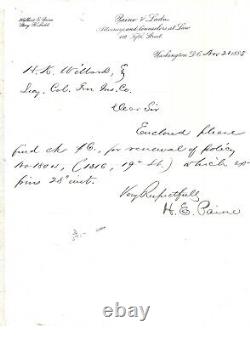 Halbert E. Paine
Paine & Ladd
Attorneys and Counselors at Law
Fifth Street
Washington D.C. Nov 21 1885
H. K. Willard, Esq
Secy. Col. Fire Ins. Co.
Dear Sir
Enclosed please
find ck for renewal of policy
No. 1804, (1816, 19th St.) which ex-
pires 28" inst.
Very Respectfully
H. E. Paine